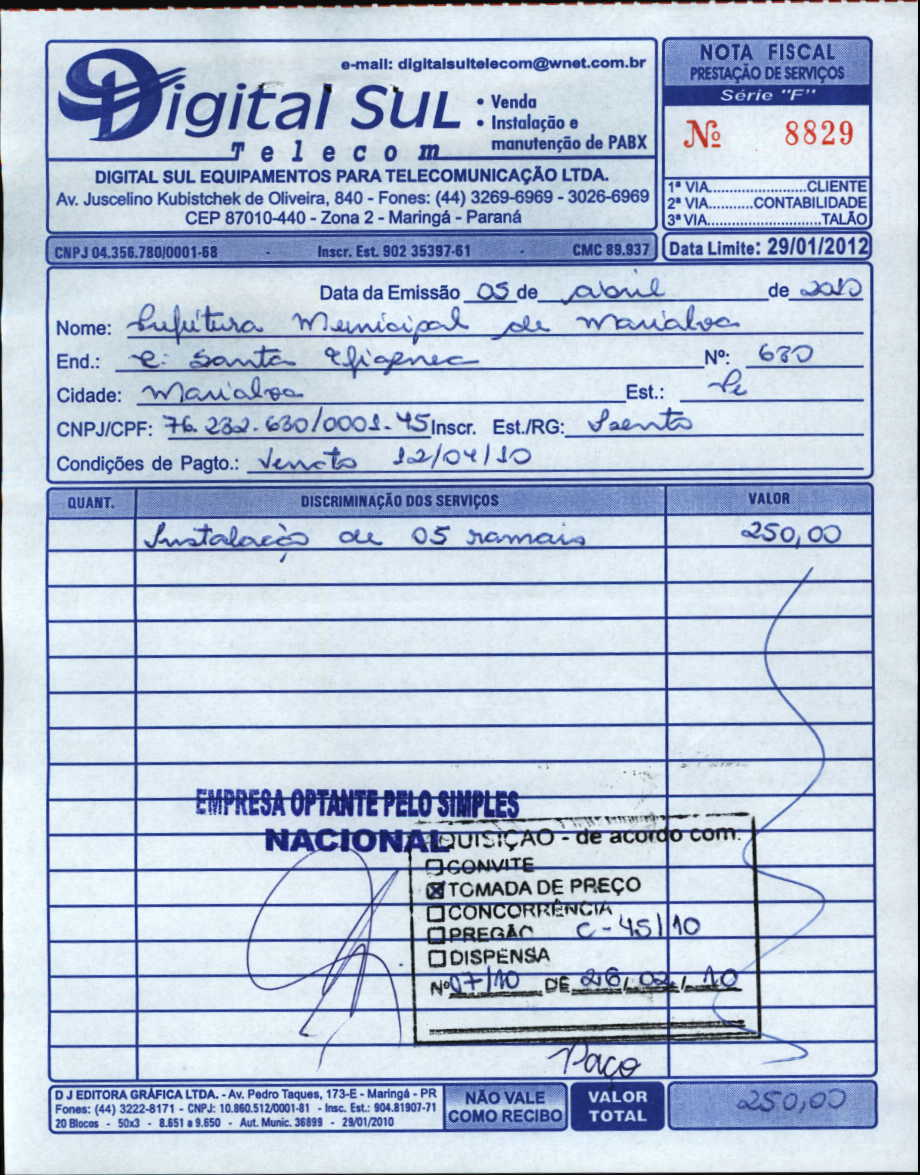 e-mail: digitalsultelecom@wnet.com.br
Digital Sul
Telecom
• Venda
• Instalação e
manutenção de PABX
DIGITAL SUL EQUIPAMENTOS PARA TELECOMUNICAÇÃO LTDA.
Av. Juscelino Kubistchek de Oliveira, 840 - Fones: (44) 3269-6969 - 3026-6969
CEP 87010-440 - Zona 2 - Maringá - Paraná
CNPJ 04.356.780/0001-68 - Inscr. Est. 902 35397-61 - CMC 89.937
NOTA FISCAL
PRESTAÇÃO DE SERVIÇOS
Série "F"
Nº 8829
1ª VIA....................CLIENTE
2ª VIA..........CONTABILIDADE
3ª VIA.......................TALÃO
Data Limite: 29/01/2012
Data da Emissão 05 de abril de 2010
Nome: Prefeitura Municipal de Marialva
End.: R. Santa Efigenea Nº: 630
Cidade: Marialva Est.: Pr
CNPJ/CPF: 76.232.630/0001-45 Inscr. Est./RG: Isento
Condições de Pagto.: Vencto 12/04/10
QUANT. DISCRIMINAÇÃO DOS SERVIÇOS VALOR
Instalação de 05 ramais 250,00
EMPRESA OPTANTE PELO SIMPLES
NACIONAL
QUISIÇÃO - de acordo com:
CONVITE
TOMADA DE PREÇO
CONCORRÊNCIA
PREGÃO C-45/10
DISPENSA
Nº 07/10 DE 26/02/10
Paço
D J EDITORA GRÁFICA LTDA. - Av. Pedro Taques, 173-E - Maringá - PR
Fones: (44) 3222-8171 - CNPJ: 10.860.512/0001-81 - Insc. Est.: 904.81907-71
20 Blocos - 50x3 - 8.651 a 9.650 - Aut. Munic. 36899 - 29/01/2010
NÃO VALE
COMO RECIBO
VALOR
TOTAL
250,00